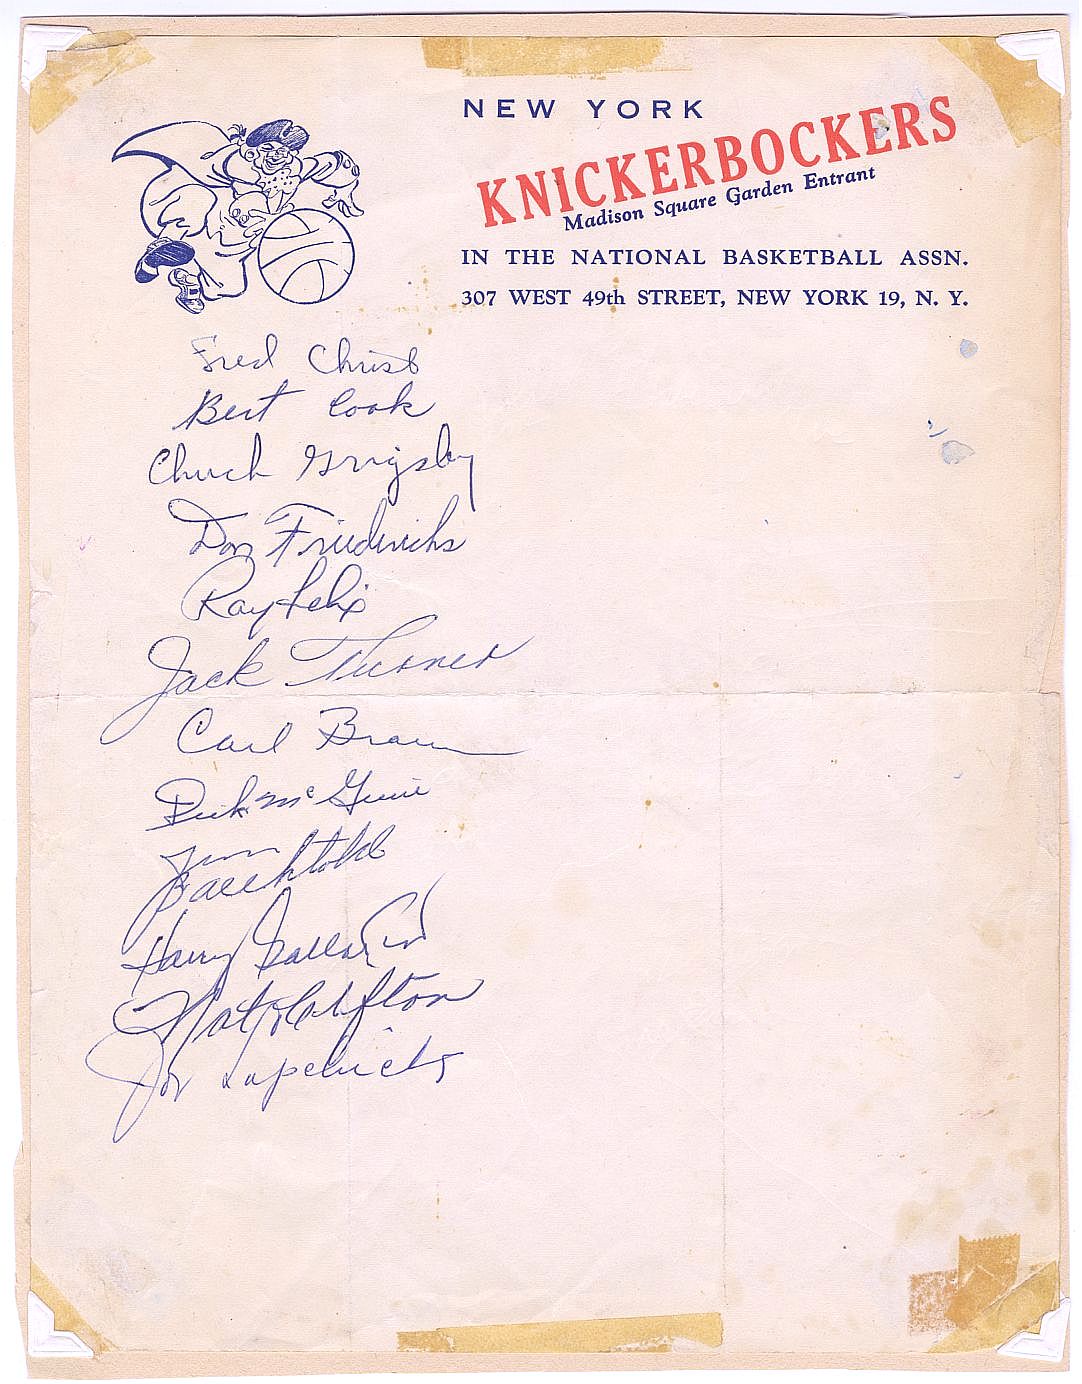 NEW YORK
KNICKERBOCKERS
Madison Square Garden Entrant
IN THE NATIONAL BASKETBALL ASSN.
307 WEST 49th STREET, NEW YORK 19, N. Y.
Fred Christ
Bert Cook
Chuck Grigsby
Don Friedrichs
Ray Felix
Jack Turner
Carl Braun
Dick McGuire
Jim
Baechtold
Harry Gallatin
Nat Clifton
Joe Lapchick